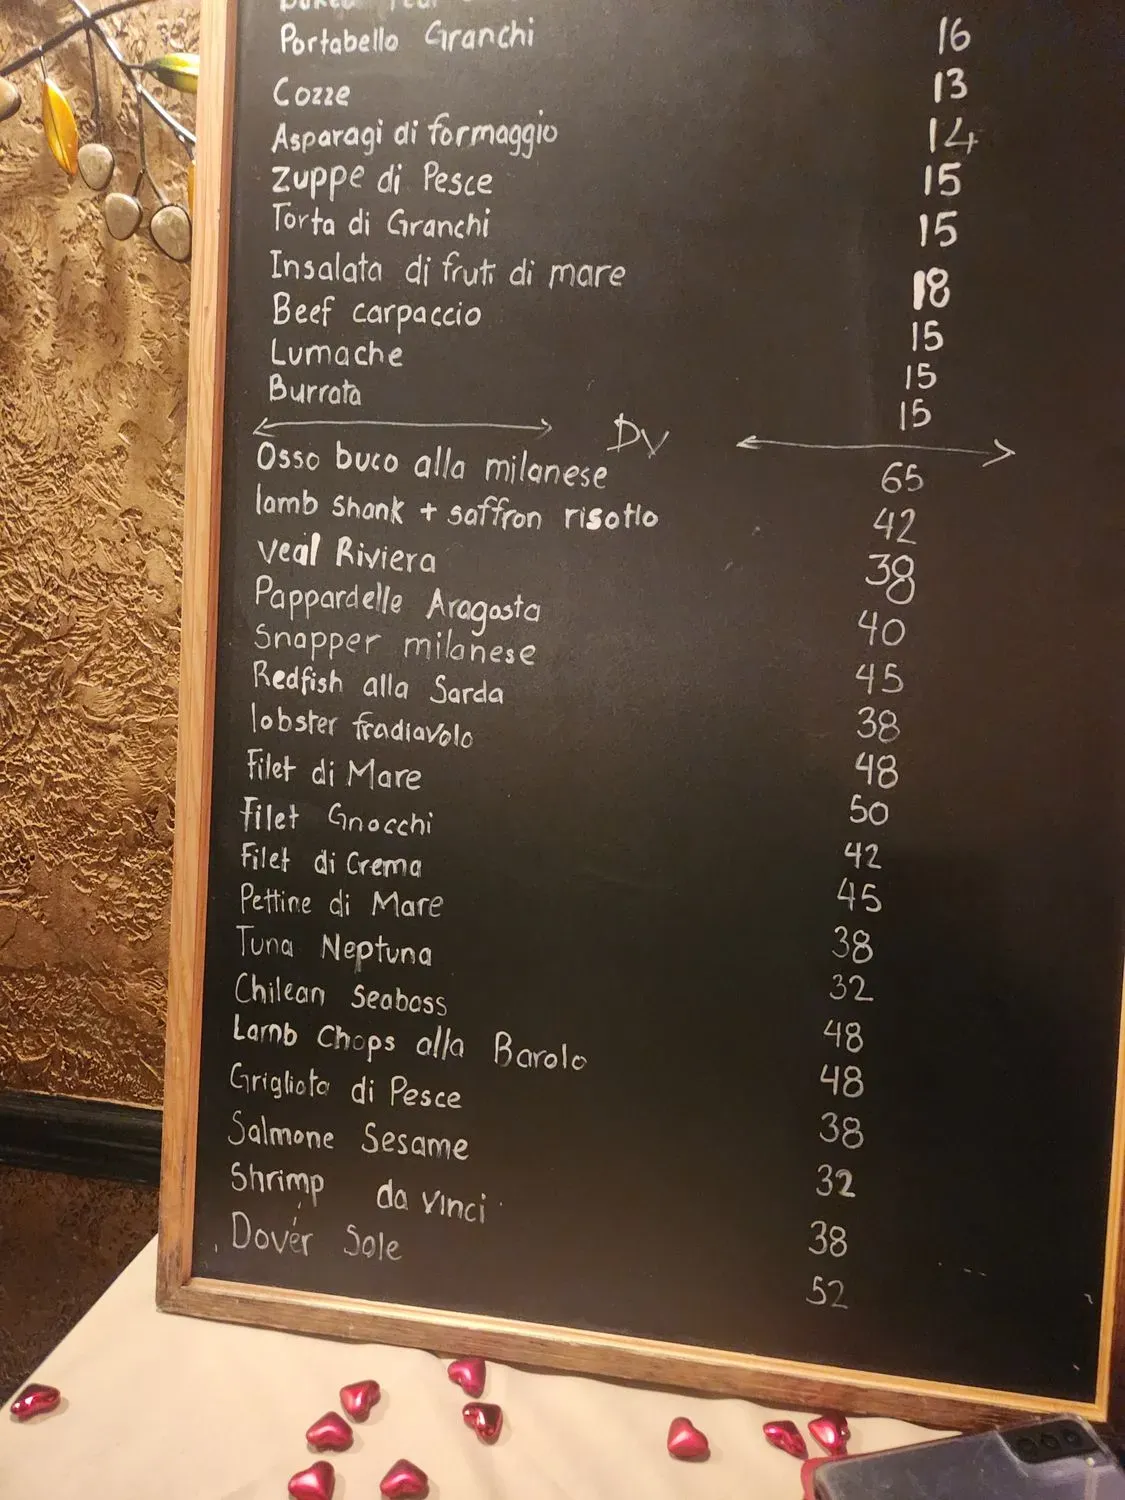 Portabello Granchi 16
Cozze 13
Asparagi di formaggio 14
Zuppe di Pesce 15
Torta di Granchi 15
Insalata di fruti di mare 18
Beef carpaccio 15
Lumache 15
Burrata 15
DV
Osso buco alla milanese 65
lamb shank + saffron risotto 42
veal Riviera 38
Pappardelle Aragosta 40
Snapper milanese 45
Redfish alla Sarda 38
lobster fradiavolo 48
Filet di Mare 50
Filet Gnocchi 42
Filet di Crema 45
Pettine di Mare 38
Tuna Neptuna 32
Chilean Seabass 48
Lamb Chops alla Barolo 48
Grigliata di Pesce 38
Salmone Sesame 32
Shrimp da vinci 38
Dover Sole 52